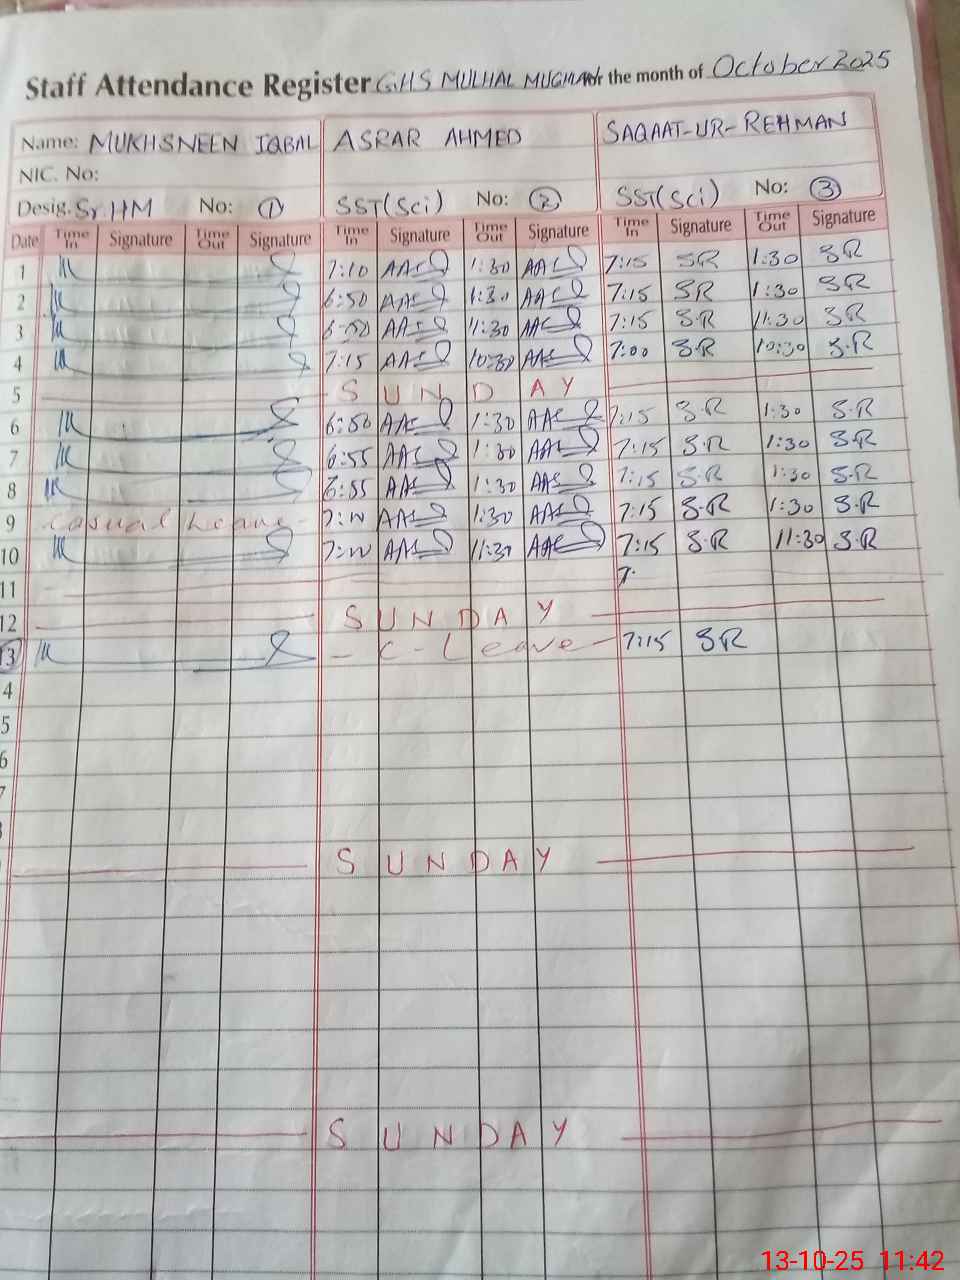 Staff Attendance Register GHS MULHAL MUGHLAN for the month of October 2025
Name: MUKHSNEEN IQBAL ASRAR AHMED SAQAAT-UR-REHMAN
NIC. No:
Desig. Sr.HM No: 1 SST(Sci) No: 2 SST(Sci) No: 3
Date Time In Signature Time Out Signature Time In Signature Time Out Signature Time In Signature Time Out Signature
1 7:10 1:30 7:15 SR 1:30 SR
2 6:50 1:30 7:15 SR 1:30 SR
3 6:50 11:30 7:15 S.R 11:30 SR
4 7:15 10:30 7:00 S.R 10:30 S.R
5 SUNDAY
6 6:50 1:30 7:15 S.R 1:30 S.R
7 6:55 1:30 7:15 S.R 1:30 S.R
8 6:55 1:30 7:15 S.R 1:30 S.R
9 Casual Leave 1:30 7:15 S.R 1:30 S.R
10 11:30 7:15 S.R 11:30 S.R
11 7.
12 SUNDAY
13 - C- Leave - 7:15 SR
4
5
6
7
SUNDAY
SUNDAY
13-10-25 11:42